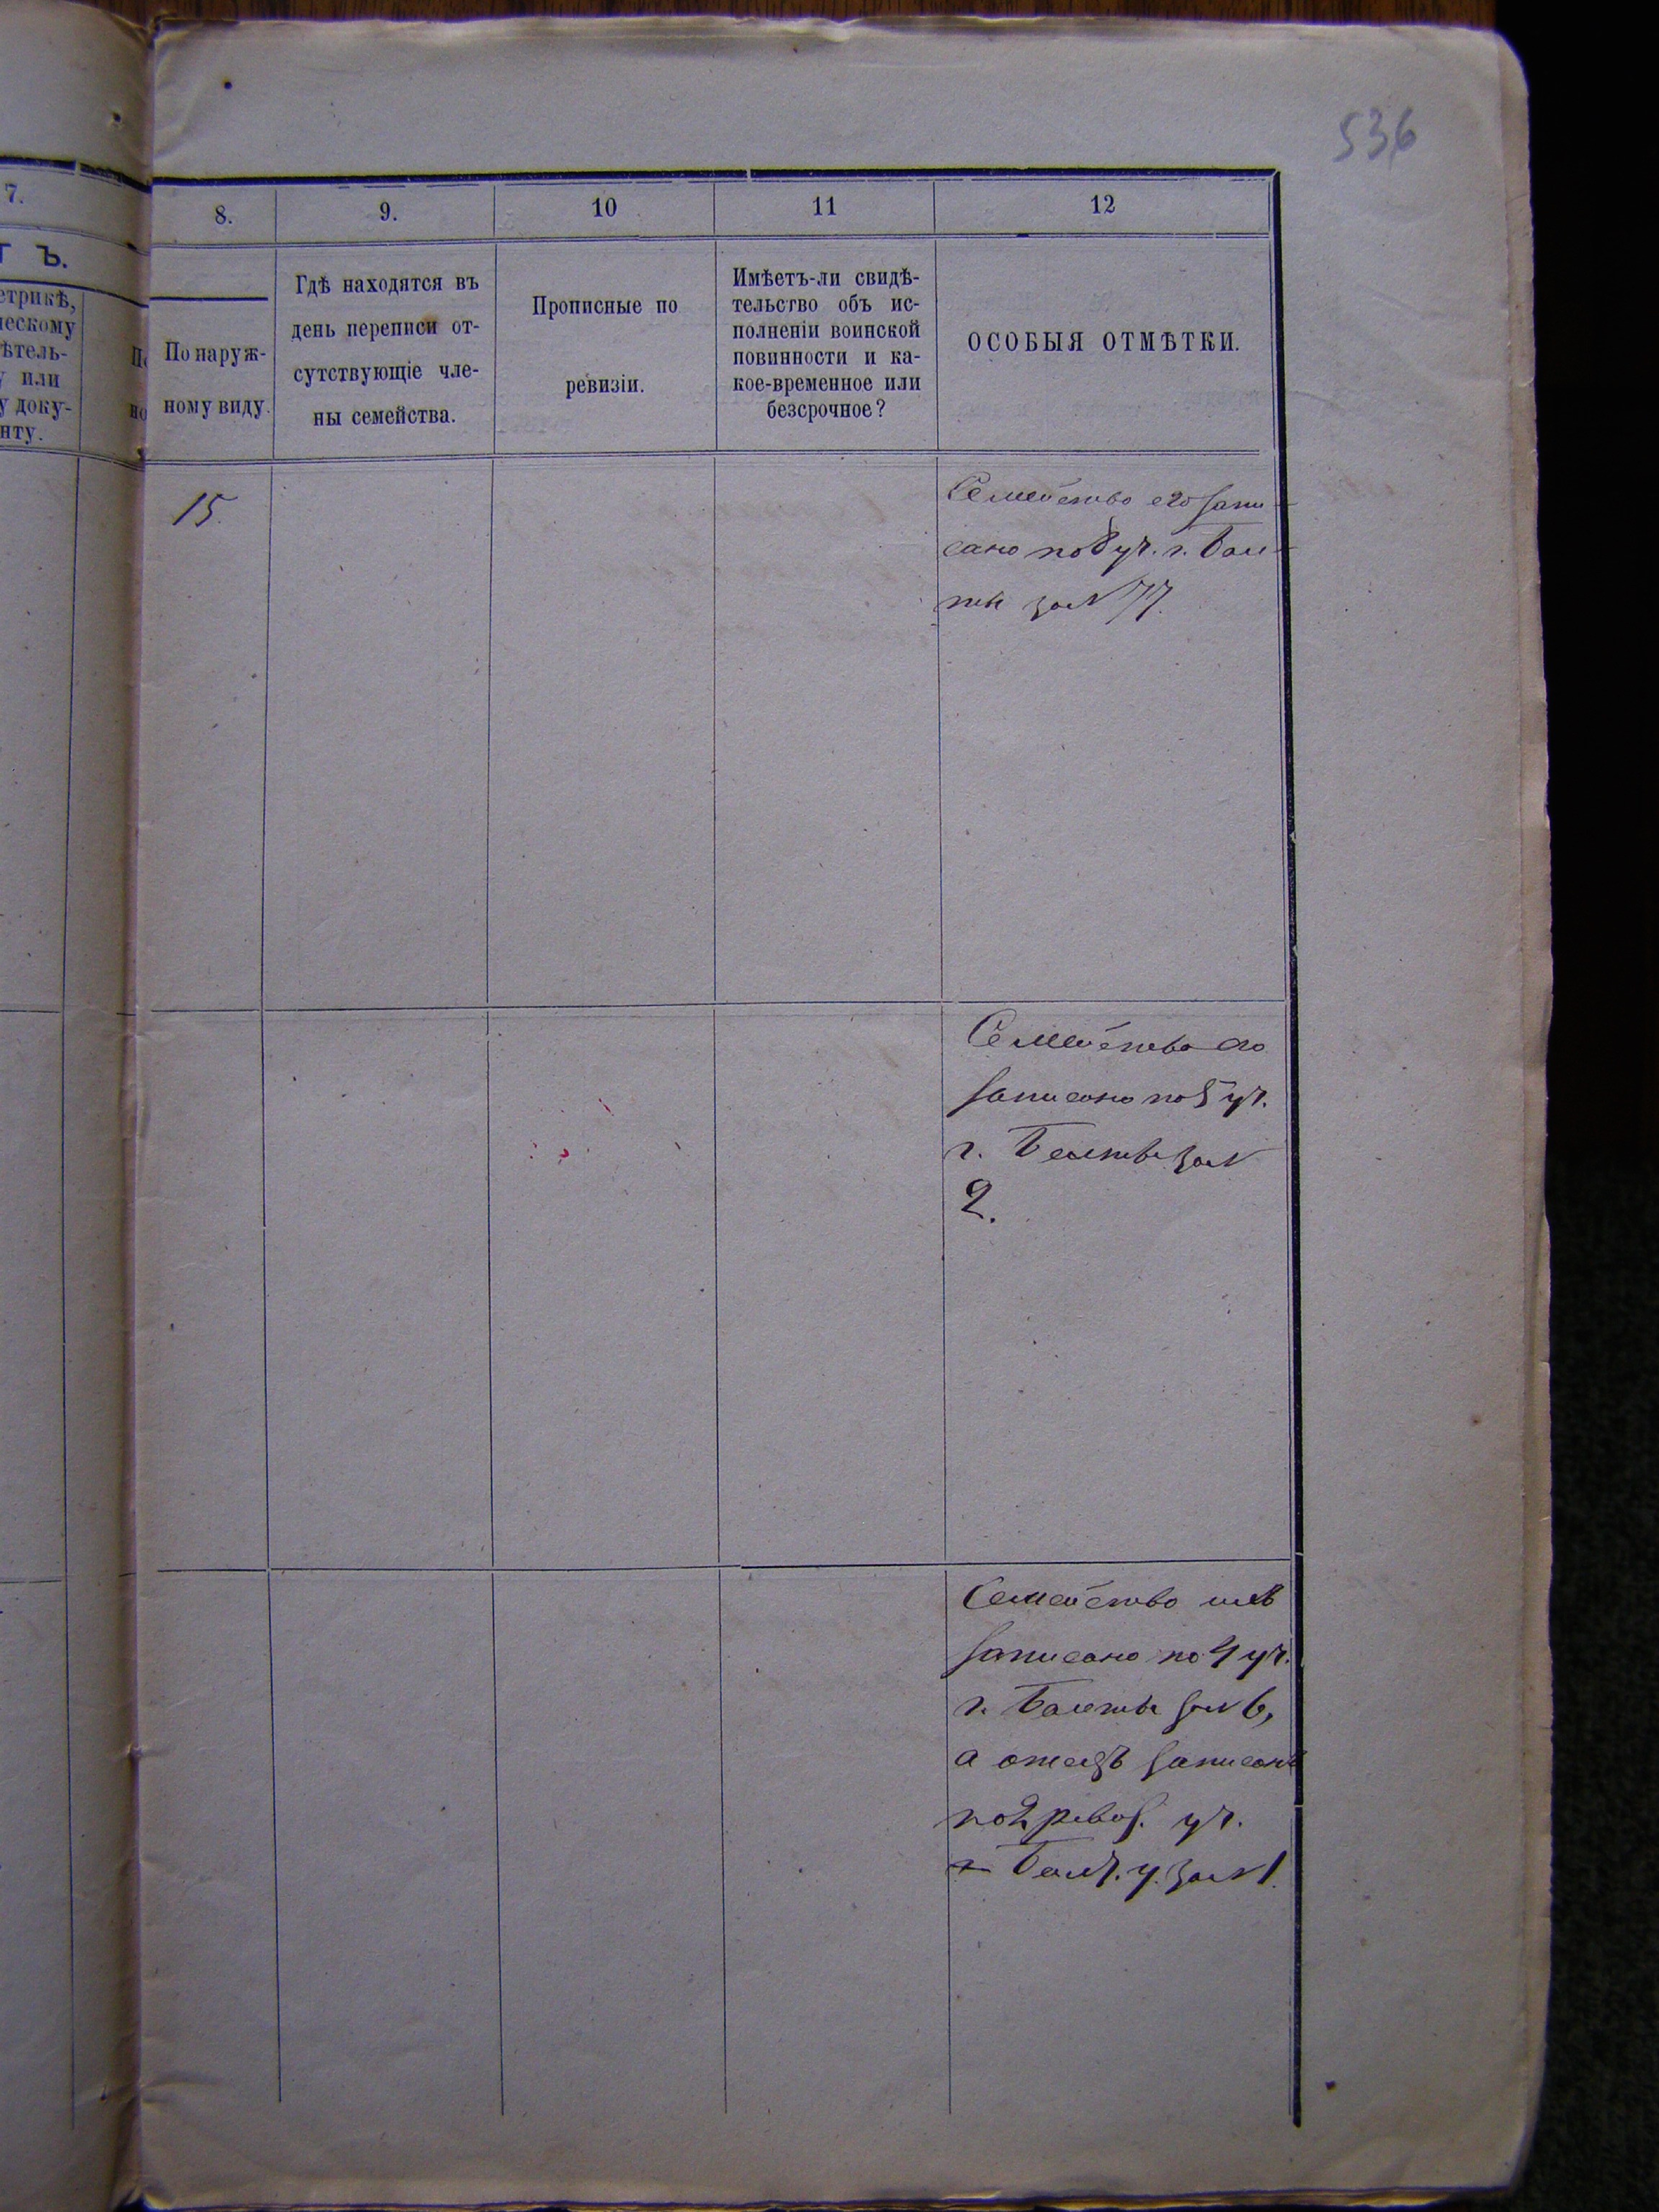 536
7.
8.
9.
10
11
12
Т Ъ.
етрикѣ,
ческому
ѣтель-
у или
у доку-
нту.
По наруж-
ному виду.
Гдѣ находятся въ
день переписи от-
сутствующіе чле-
ны семейства.
Прописные по
ревизіи.
Имѣетъ-ли свидѣ-
тельство объ ис-
полненіи воинской
повинности и ка-
кое-временное или
безсрочное?
ОСОБЫЯ ОТМѢТКИ.
15
Семейство его запи-
сано по уч. г. Бал-
ты за № 77.
Семейство его
записано по 5 уч.
г. Балты за №
2.
Семейство
записано по 4 уч.
г. Балты за № 6,
а отецъ записанъ
по 2 уч.
Балт. у. за № 1.